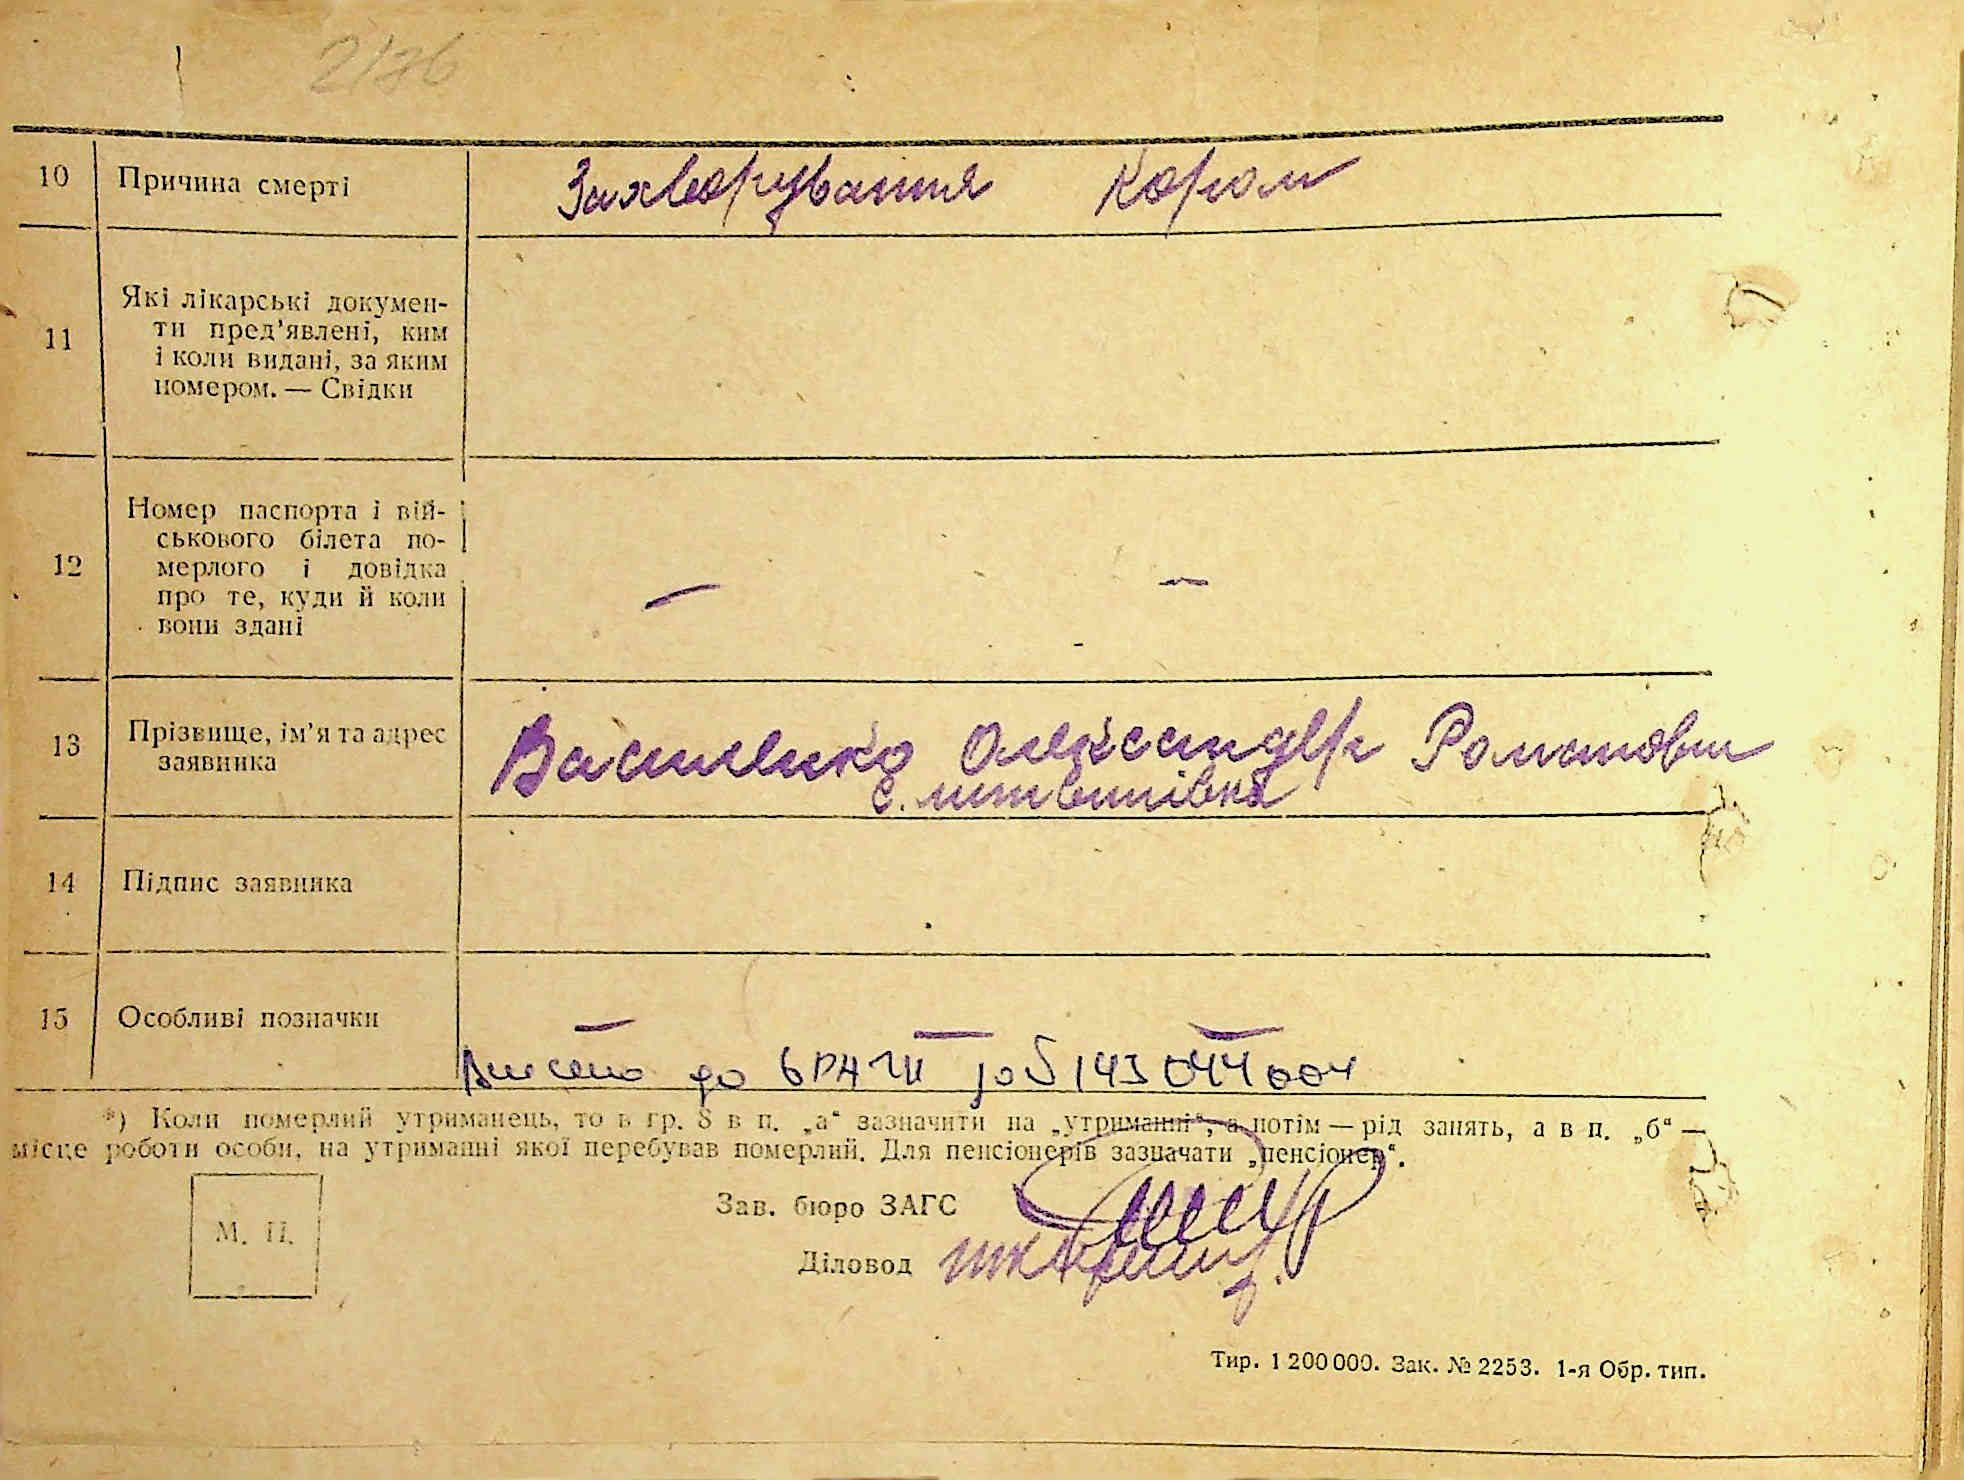 2176
10 Причина смерті Захворування Кором
11 Які лікарські докумен-
ти пред’явлені, ким
і коли видані, за яким
номером. — Свідки
12 Номер паспорта і вій-
ськового білета по-
мерлого і довідка
про те, куди й коли
вони здані — —
13 Прізвище, ім’я та адрес
заявника
Василенко Олександр Романович
с. Литвинівка
14 Підпис заявника
15 Особливі позначки — — —
Внесено до
*) Коли померлий утриманець, то в гр. 8 в п. „а“ зазначити на „утриманні“, а потім — рід занять, а в п. „б“ —
місце роботи особи, на утриманні якої перебував померлий. Для пенсіонерів зазначати „пенсіонер“.
Зав. бюро ЗАГС
М. П.
Діловод
Тир. 1 200 000. Зак. № 2253. 1-я Обр. тип.